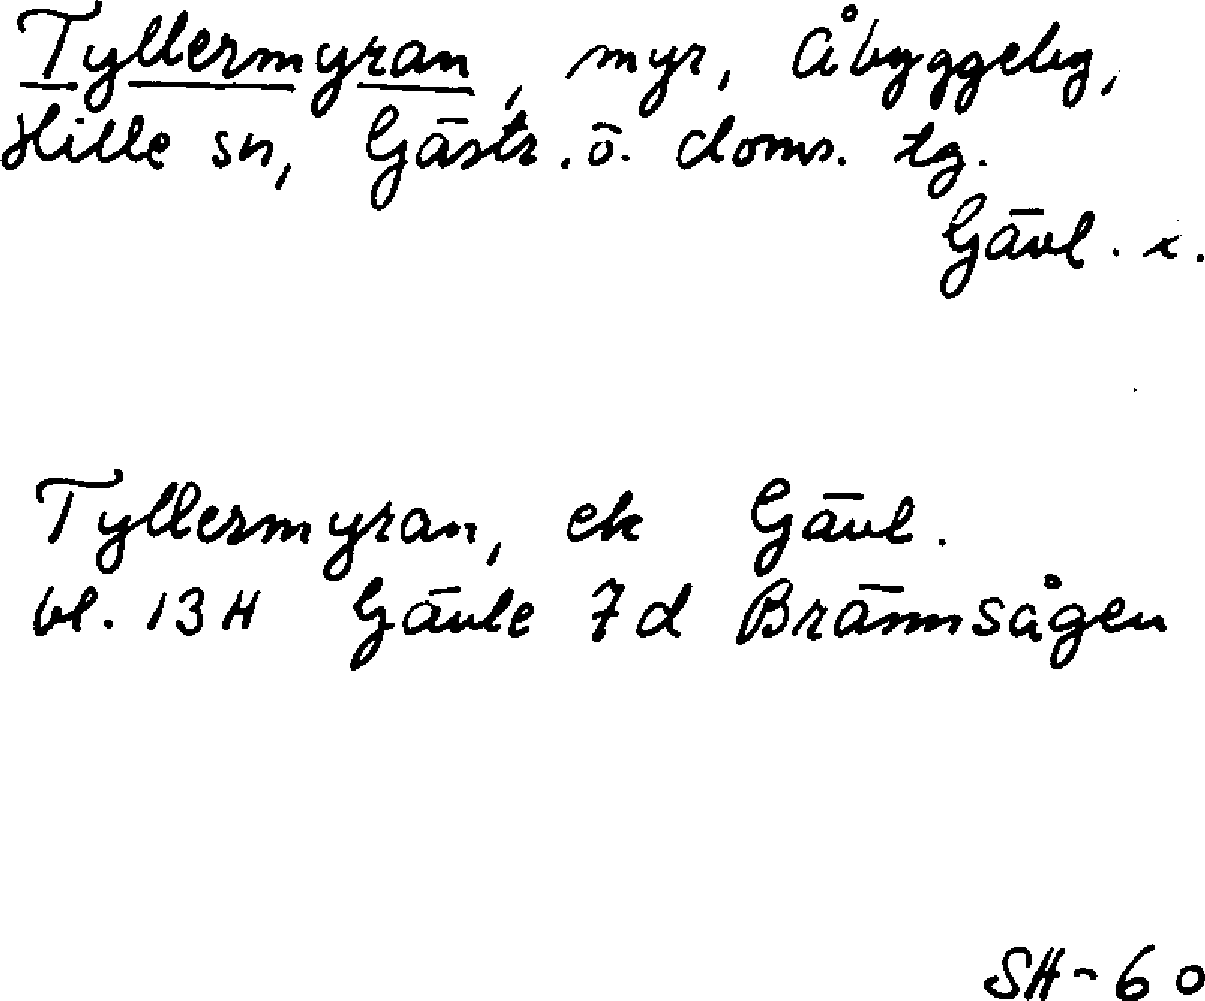 Tyllermyran, myr, Åbyggeby,
Hille sn, Gästr. ö. doms. tg.
Gävl. l.
Tyllermyran, ek Gävl.
bl. 13H Gävle 7d Brännsågen
SH-60